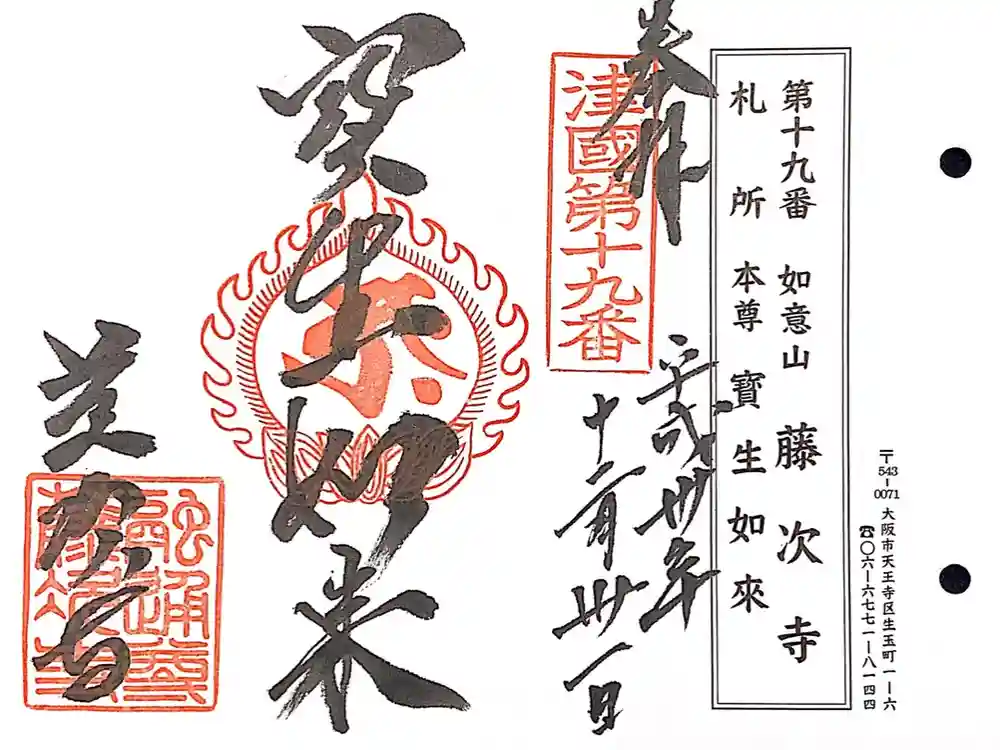 〒543-0071 大阪市天王寺区生玉町一ー六
☎〇六ー六七七一ー八一四四
第十九番 如意山 藤次寺
札所本尊 寶生如來
奉拝
津國第十九番
平成卅年
十二月卅一日
寶生如来
藤次寺
融通尊
藤次寺